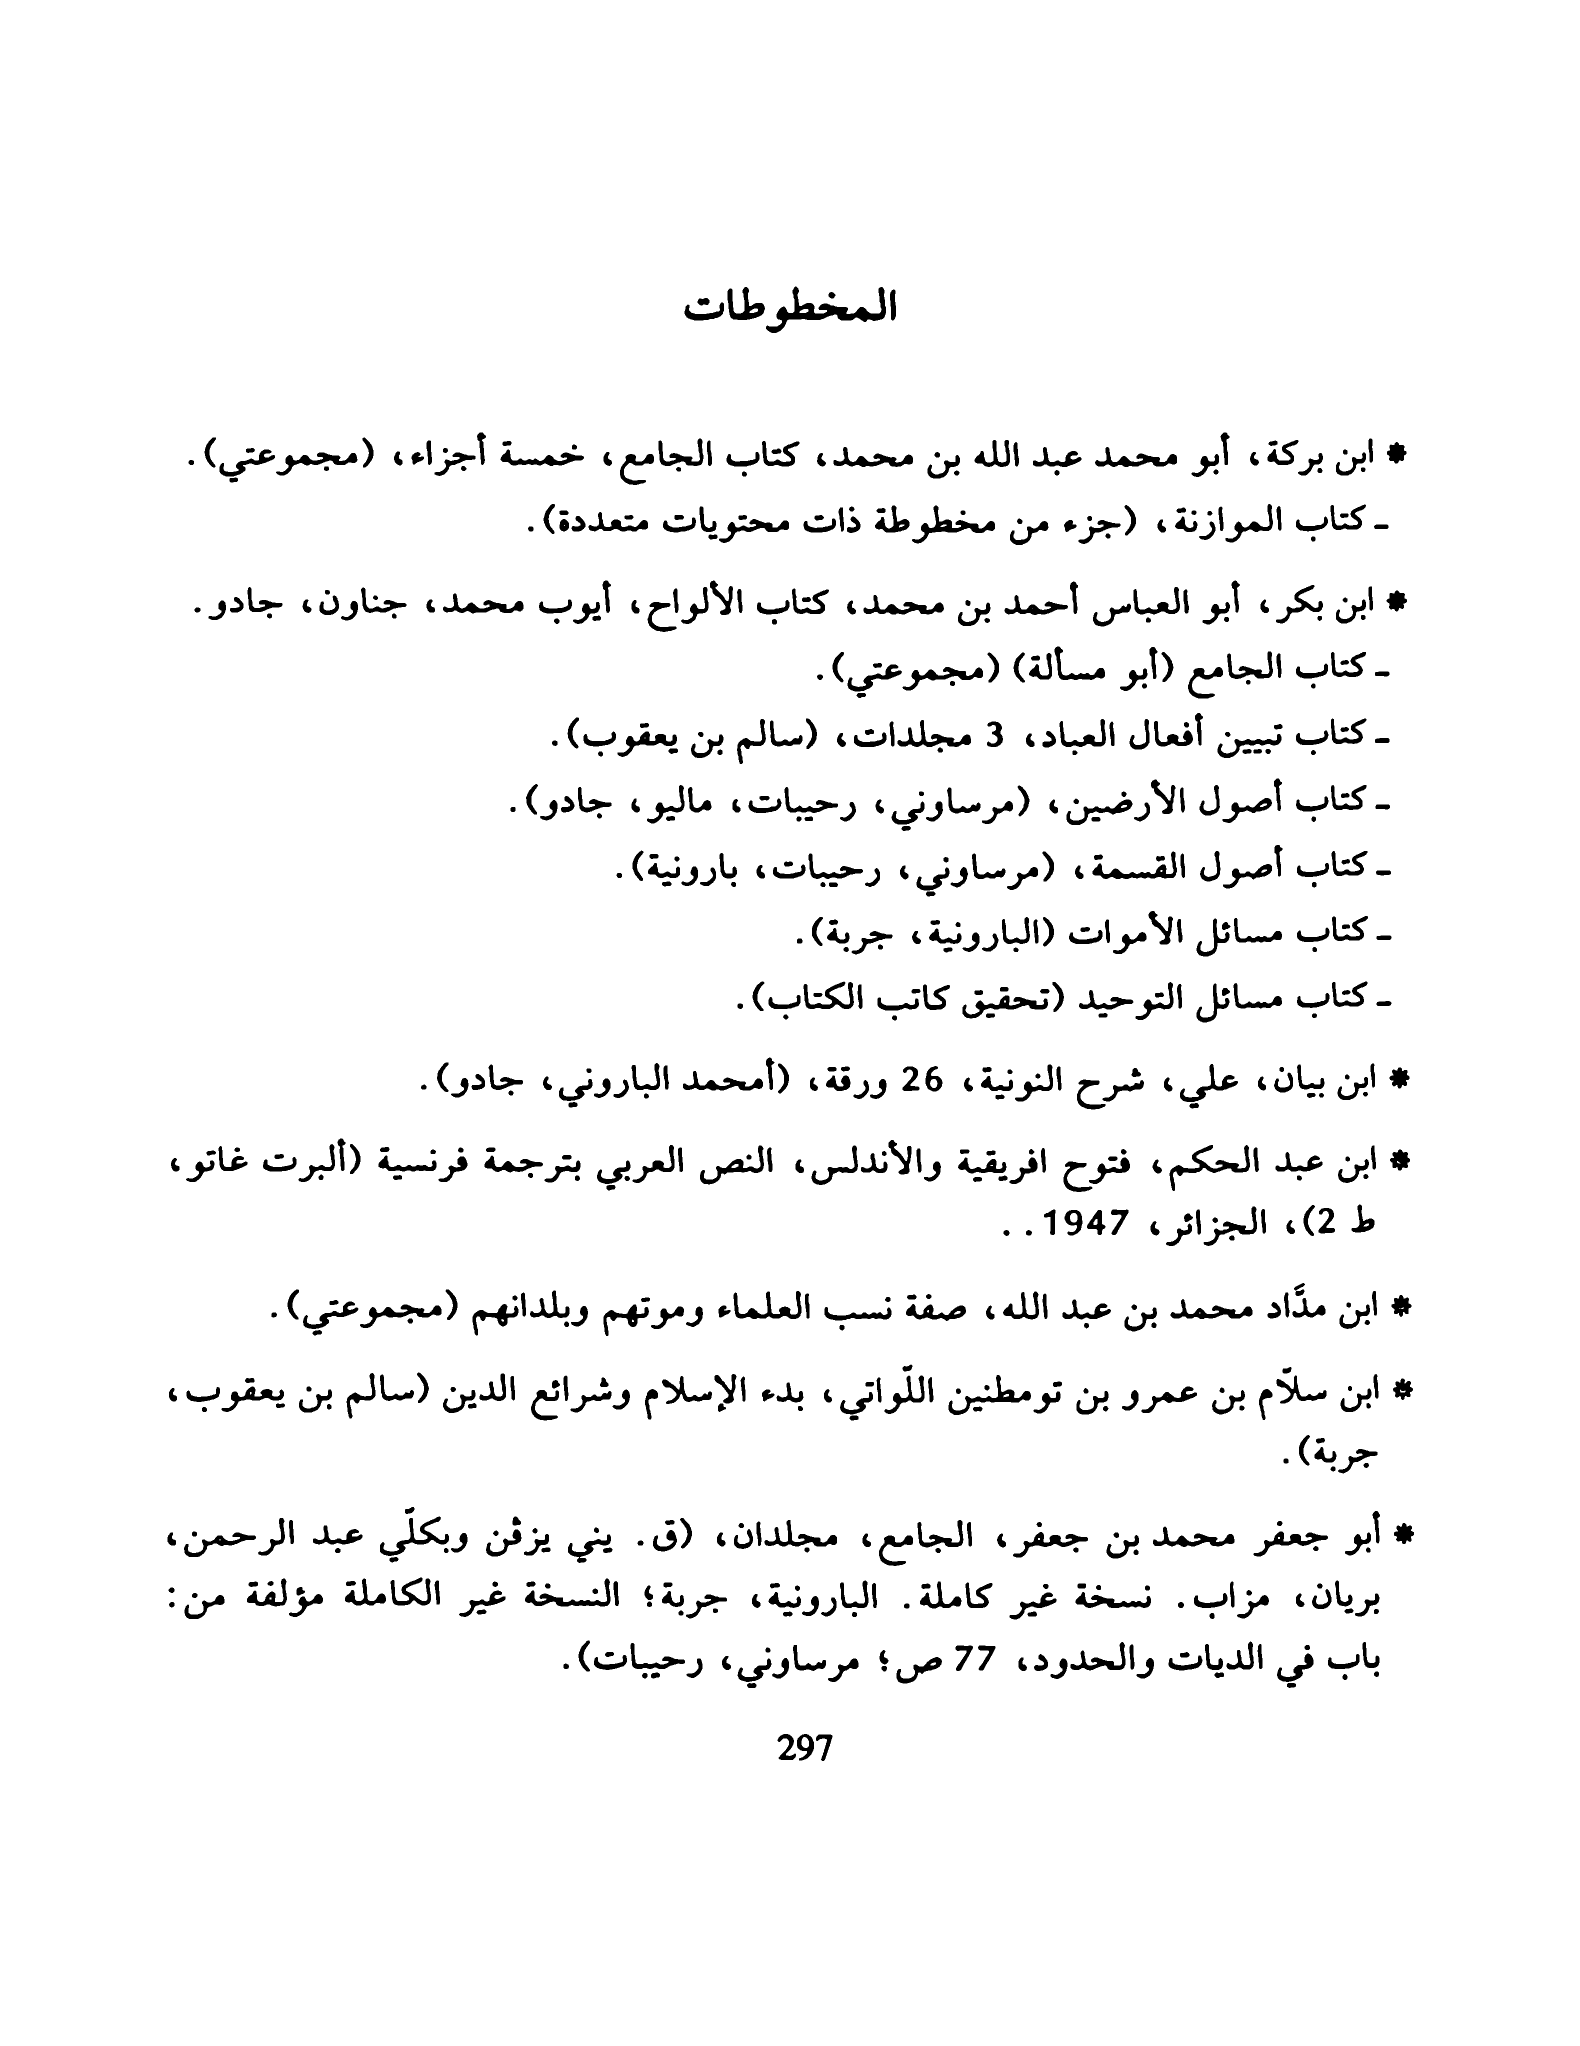 المخطوطات
* ابن بركة، أبو محمد عبد الله بن محمد، كتاب الجامع، خمسة أجزاء، (مجموعتي).
- كتاب الموازنة، (جزء من مخطوطة ذات محتويات متعددة).
* ابن بكر، أبو العباس أحمد بن محمد، كتاب الألواح، أيوب محمد، جناون، جادو.
- كتاب الجامع (أبو مسألة) (مجموعتي).
- كتاب تبيين أفعال العباد، 3 مجلدات، (سالم بن يعقوب).
- كتاب أصول الأرضين، (مرساوني، رحيبات، ماليو، جادو).
- كتاب أصول القسمة، (مرساوني، رحيبات، بارونية).
- كتاب مسائل الأموات (البارونية، جربة).
- كتاب مسائل التوحيد (تحقيق كاتب الكتاب).
* ابن بيان، علي، شرح النونية، 26 ورقة، (أمحمد الباروني، جادو).
* ابن عبد الحكم، فتوح افريقية والأندلس، النص العربي بترجمة فرنسية (ألبرت غاتو،
ط 2)، الجزائر، 1947 . .
* ابن مدَّاد محمد بن عبد الله، صفة نسب العلماء وموتهم وبلدانهم (مجموعتي).
* ابن سلاّم بن عمرو بن تومطنين اللّواتي، بدء الإسلام وشرائع الدين (سالم بن يعقوب،
جربة).
* أبو جعفر محمد بن جعفر، الجامع، مجلدان، (ق. يني يزڤن وبكلّي عبد الرحمن،
بريان، مزاب. نسخة غير كاملة. البارونية، جربة؛ النسخة غير الكاملة مؤلفة من:
باب في الديات والحدود، 77 ص؛ مرساوني، رحيبات).
297